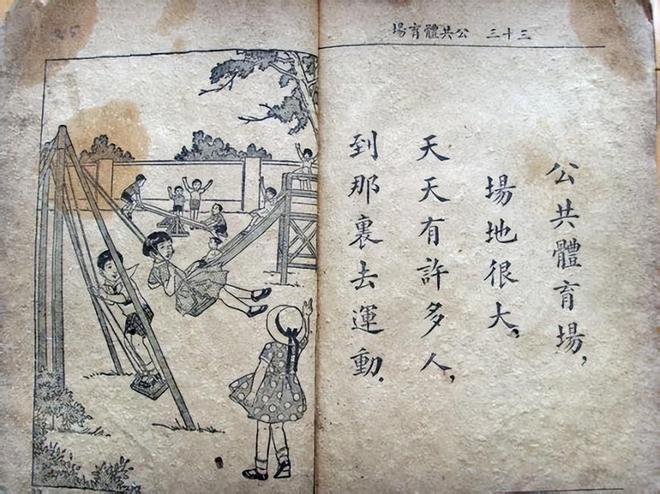 三十三 公共體育場
公共體育場，
場地很大，
天天有許多人，
到那裏去運動．